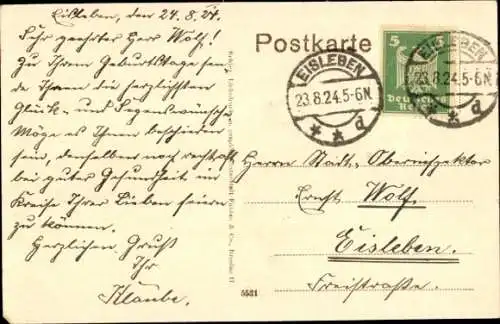 Eisleben, den 24.8.24.
Sehr geehrter Herr Wolf!
Zu Ihrem Geburtstage sen-
de Ihnen die herzlichsten
Glück- und Segenswünsche.
Möge es Ihnen beschieden
sein, denselben noch recht oft
bei guter Gesundheit im
Kreise Ihrer Lieben feiern
zu können.
Herzlichen Gruß
Ihr
Klaube.
Postkarte
EISLEBEN
23.8.24.5-6N.
* * d
5
Deutsches
Reich
EISLEBEN
23.8.24.5-6N.
* d
Herrn Stadt-Oberinspektor
Ernst Wolf.
Eisleben.
Freistraße.
5531